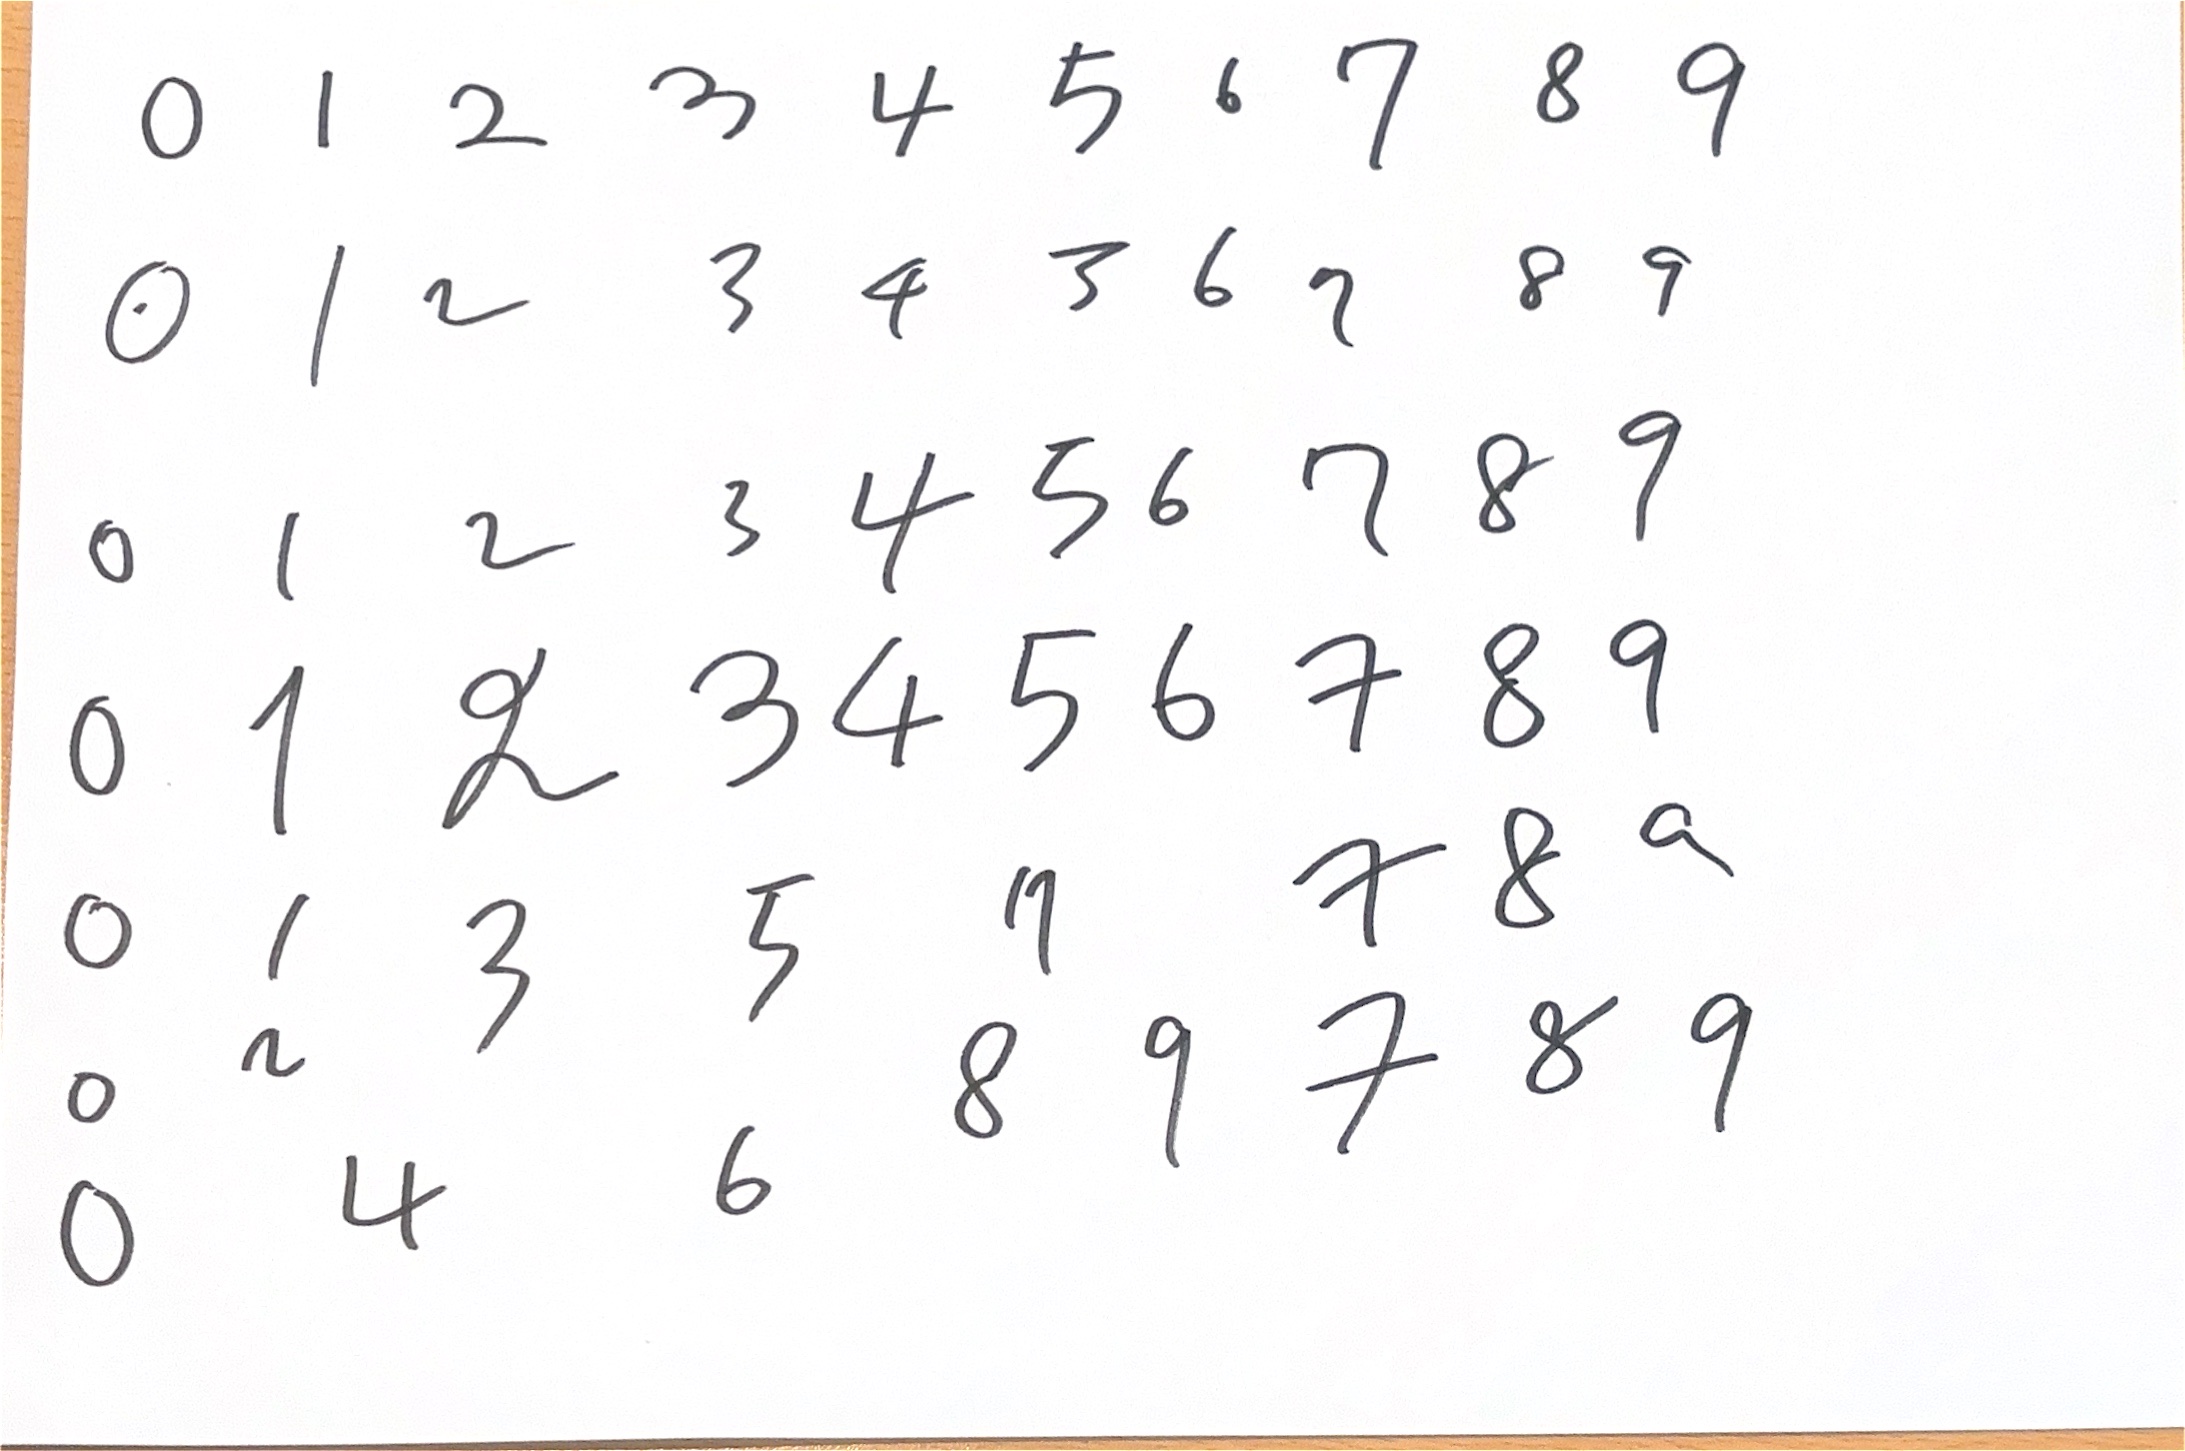 0 1 2 3 4 5 6 7 8 9
0 1 2 3 4 5 6 7 8 9
0 1 2 3 4 5 6 7 8 9
0 1 2 3 4 5 6 7 8 9
0 1 3 5 7 7 8 9
0 2 8 9 7 8 9
0 4 6